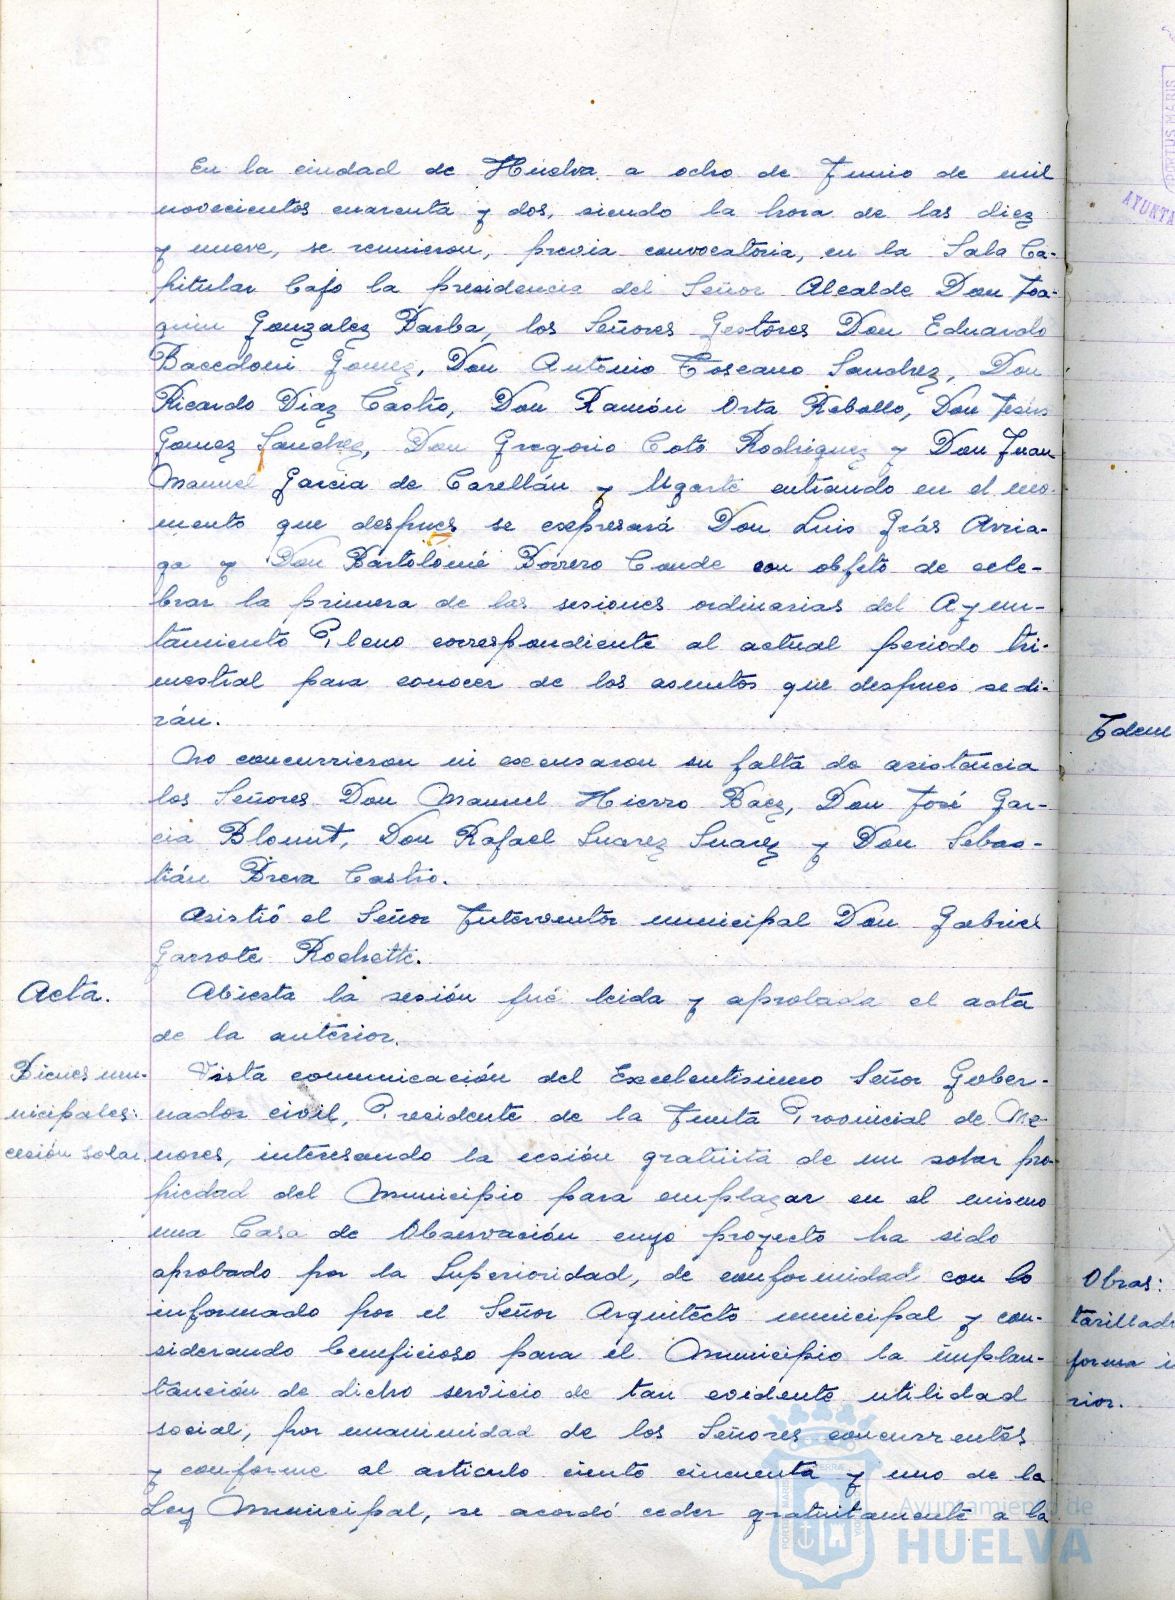 En la ciudad de Huelva a ocho de Junio de mil
novecientos cuarenta y dos, siendo la hora de las diez
y nueve, se reunieron, previa convocatoria, en la Sala Ca-
pitular bajo la presidencia del Señor Alcalde Don Joa-
quin Gonzalez Barba, los Señores Gestores Don Eduardo
Bacedoni Gomez, Don Antonio Toscano Sanchez, Don
Ricardo Diaz Castro, Don Ramón Orta Rebollo, Don Jesús
Gomez Sanchez, Don Gregorio Coto Rodriguez y Don Juan
Manuel Garcia de Carellán y Ugarte entrando en el mo-
mento que despues se expresará Don Luis Grás Arria-
ga y Don Bartolomé Borrero Conde con objeto de cele-
brar la primera de las sesiones ordinarias del Ayun-
tamiento Pleno correspondiente al actual periodo tri-
mestral para conocer de los asuntos que despues se di-
rán.
No concurrieron ni excusaron su falta de asistencia
los Señores Don Manuel Hierro Baez, Don José Gar-
cia Blount, Don Rafael Suarez Suarez y Don Sebas-
tián Breva Castro.
Asistió el Señor Interventor municipal Don Gabriel
Garrote Rochette.
Acta.
Abierta la sesión fué leida y aprobada el acta
de la anterior.
Bienes mu-
nicipales:
cesión solar.
Vista comunicación del Excelentisimo Señor Gober-
nador civil, Presidente de la Junta Provincial de Me-
nores, interesando la cesión gratuita de un solar pro-
piedad del Municipio para emplazar en el mismo
una Casa de Observación cuyo proyecto ha sido
aprobado por la Superioridad, de conformidad con lo
informado por el Señor Arquitecto municipal y con-
siderando beneficioso para el Municipio la implan-
tanción de dicho servicio de tan evidente utilidad
social, por unanimidad de los Señores concurrentes
y conforme al articulo ciento cincuenta y uno de la
Ley Municipal, se acordó ceder gratuitamente a la
Idem
Obras:
tarillado
forma in
rior.
PORTUS MARIS
AYUNTA
Ayuntamiento de
HUELVA